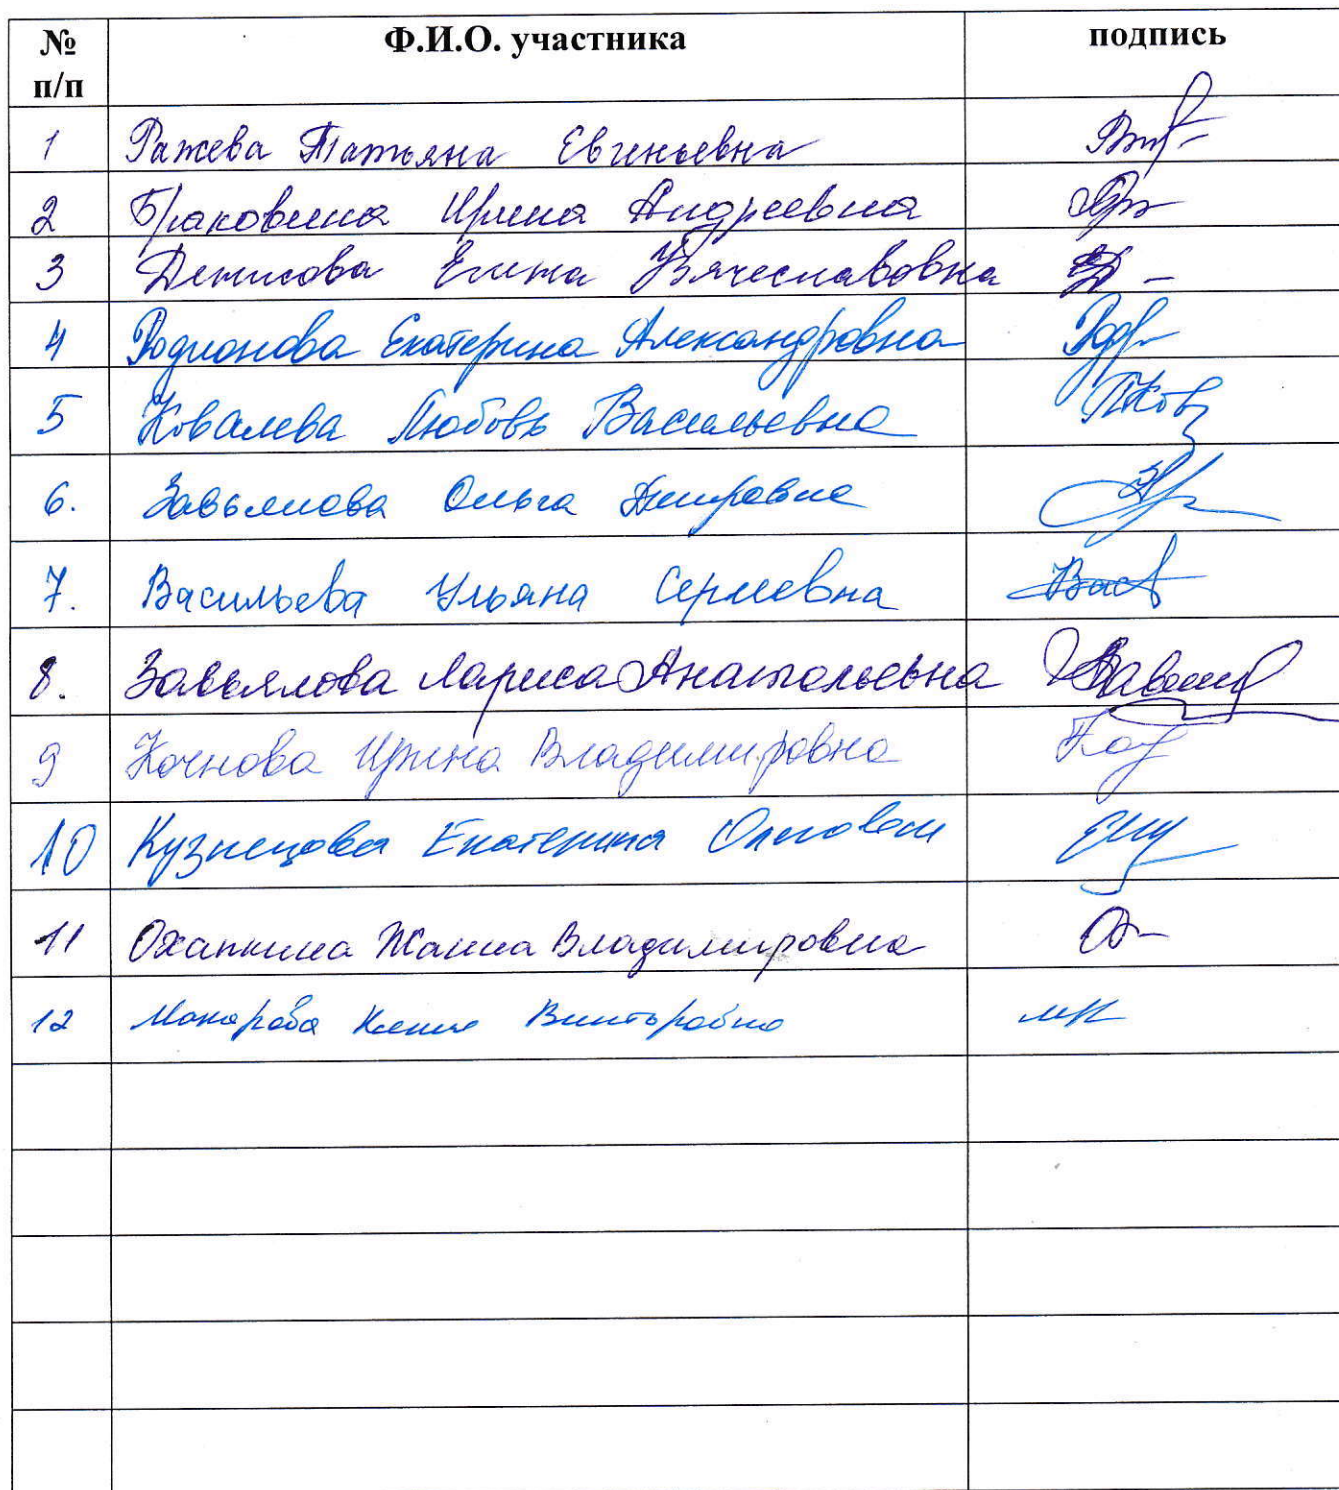 № п/п Ф.И.О. участника подпись
1 Ражева Татьяна Евгеньевна
2 Браковина Ирина Андреевна
3 Денисова Елена Вячеславовна
4 Родионова Екатерина Александровна
5 Ковалева Любовь Васильевна
6. Завьялова Ольга
7. Васильева Ульяна Сергеевна
8. Завьялова Лариса Анатольевна
9 Кочнова Ирина Владимировна
10 Кузнецова Екатерина Олеговна
11 Охапкина Жанна Владимировна
12 Макарова Ксения Викторовна